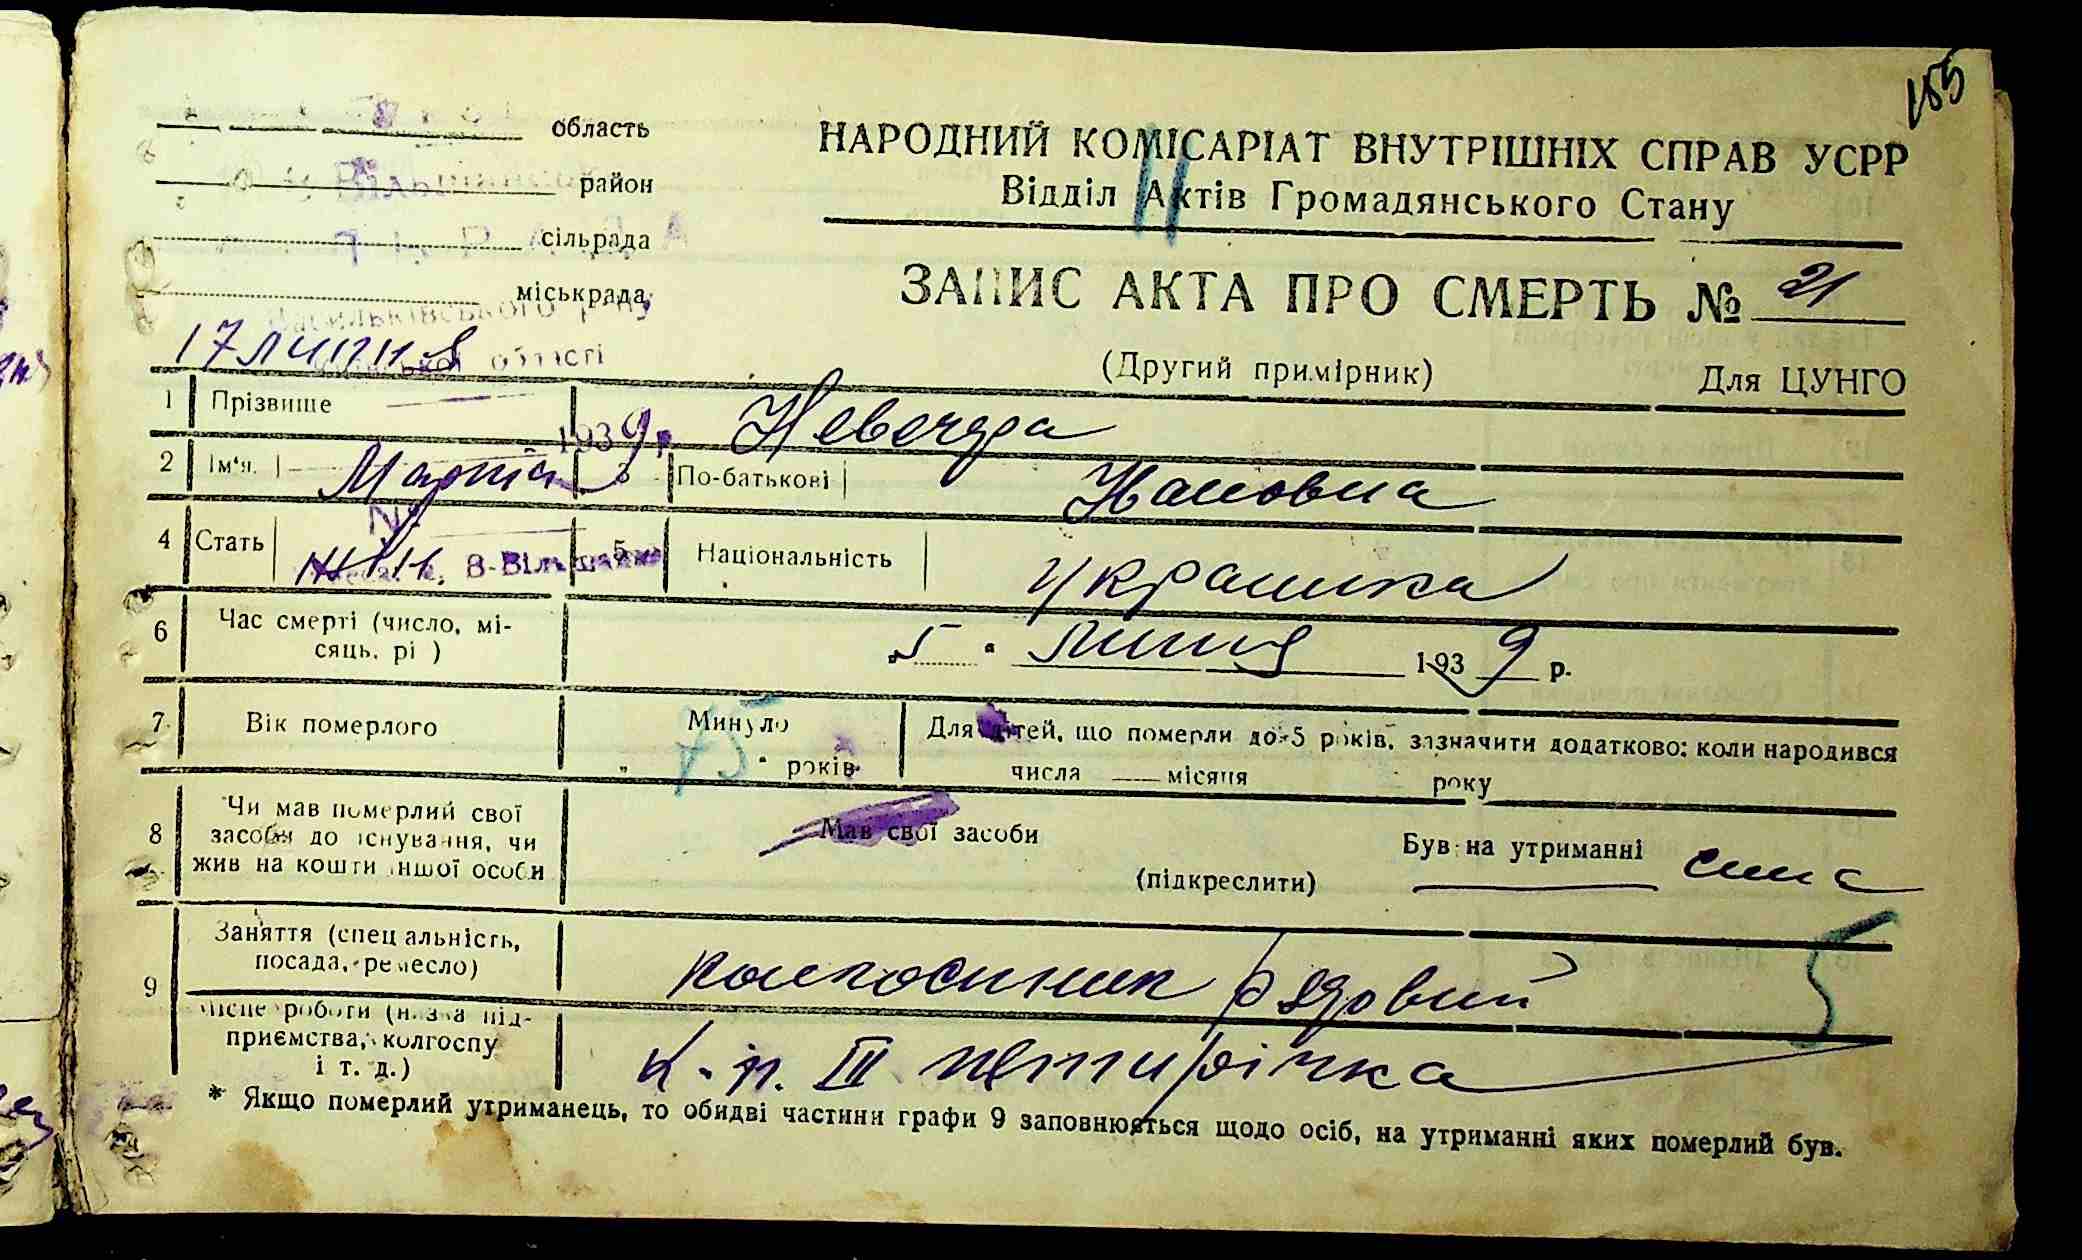 155
область
НАРОДНИЙ КОМІСАРІАТ ВНУТРІШНІХ СПРАВ УСРР
район
Відділ Актів Громадянського Стану
сільрада
міськрада
ЗАПИС АКТА ПРО СМЕРТЬ № 21
Васильківського р-ну
17 липня області
(Другий примірник) Для ЦУНГО
1 Прізвище
1939 р.
2 Ім'я. 3 По-батькові
4 Стать В-Вільшанка 5 Національність Українка
6 Час смерті (число, мі-
сяць. рі )
„5“ липня 1939 р.
7 Вік померлого Минуло „75“ років
Для дітей, що померли до 5 років, зазначити додатково: коли народився
числа місяця року
8 Чи мав померлий свої
засоби до існування, чи
жив на кошти іншої особи
Мав свої засоби Був на утриманні сина
(підкреслити)
9 Заняття (спеціальність,
посада, ремесло)
колгоспник рядовий
Місце роботи (назва під-
приємства, колгоспу
і т. д.)
к-п. III пятирічка
* Якщо померлий утриманець, то обидві частини графи 9 заповнюються щодо осіб, на утриманні яких померлий був.